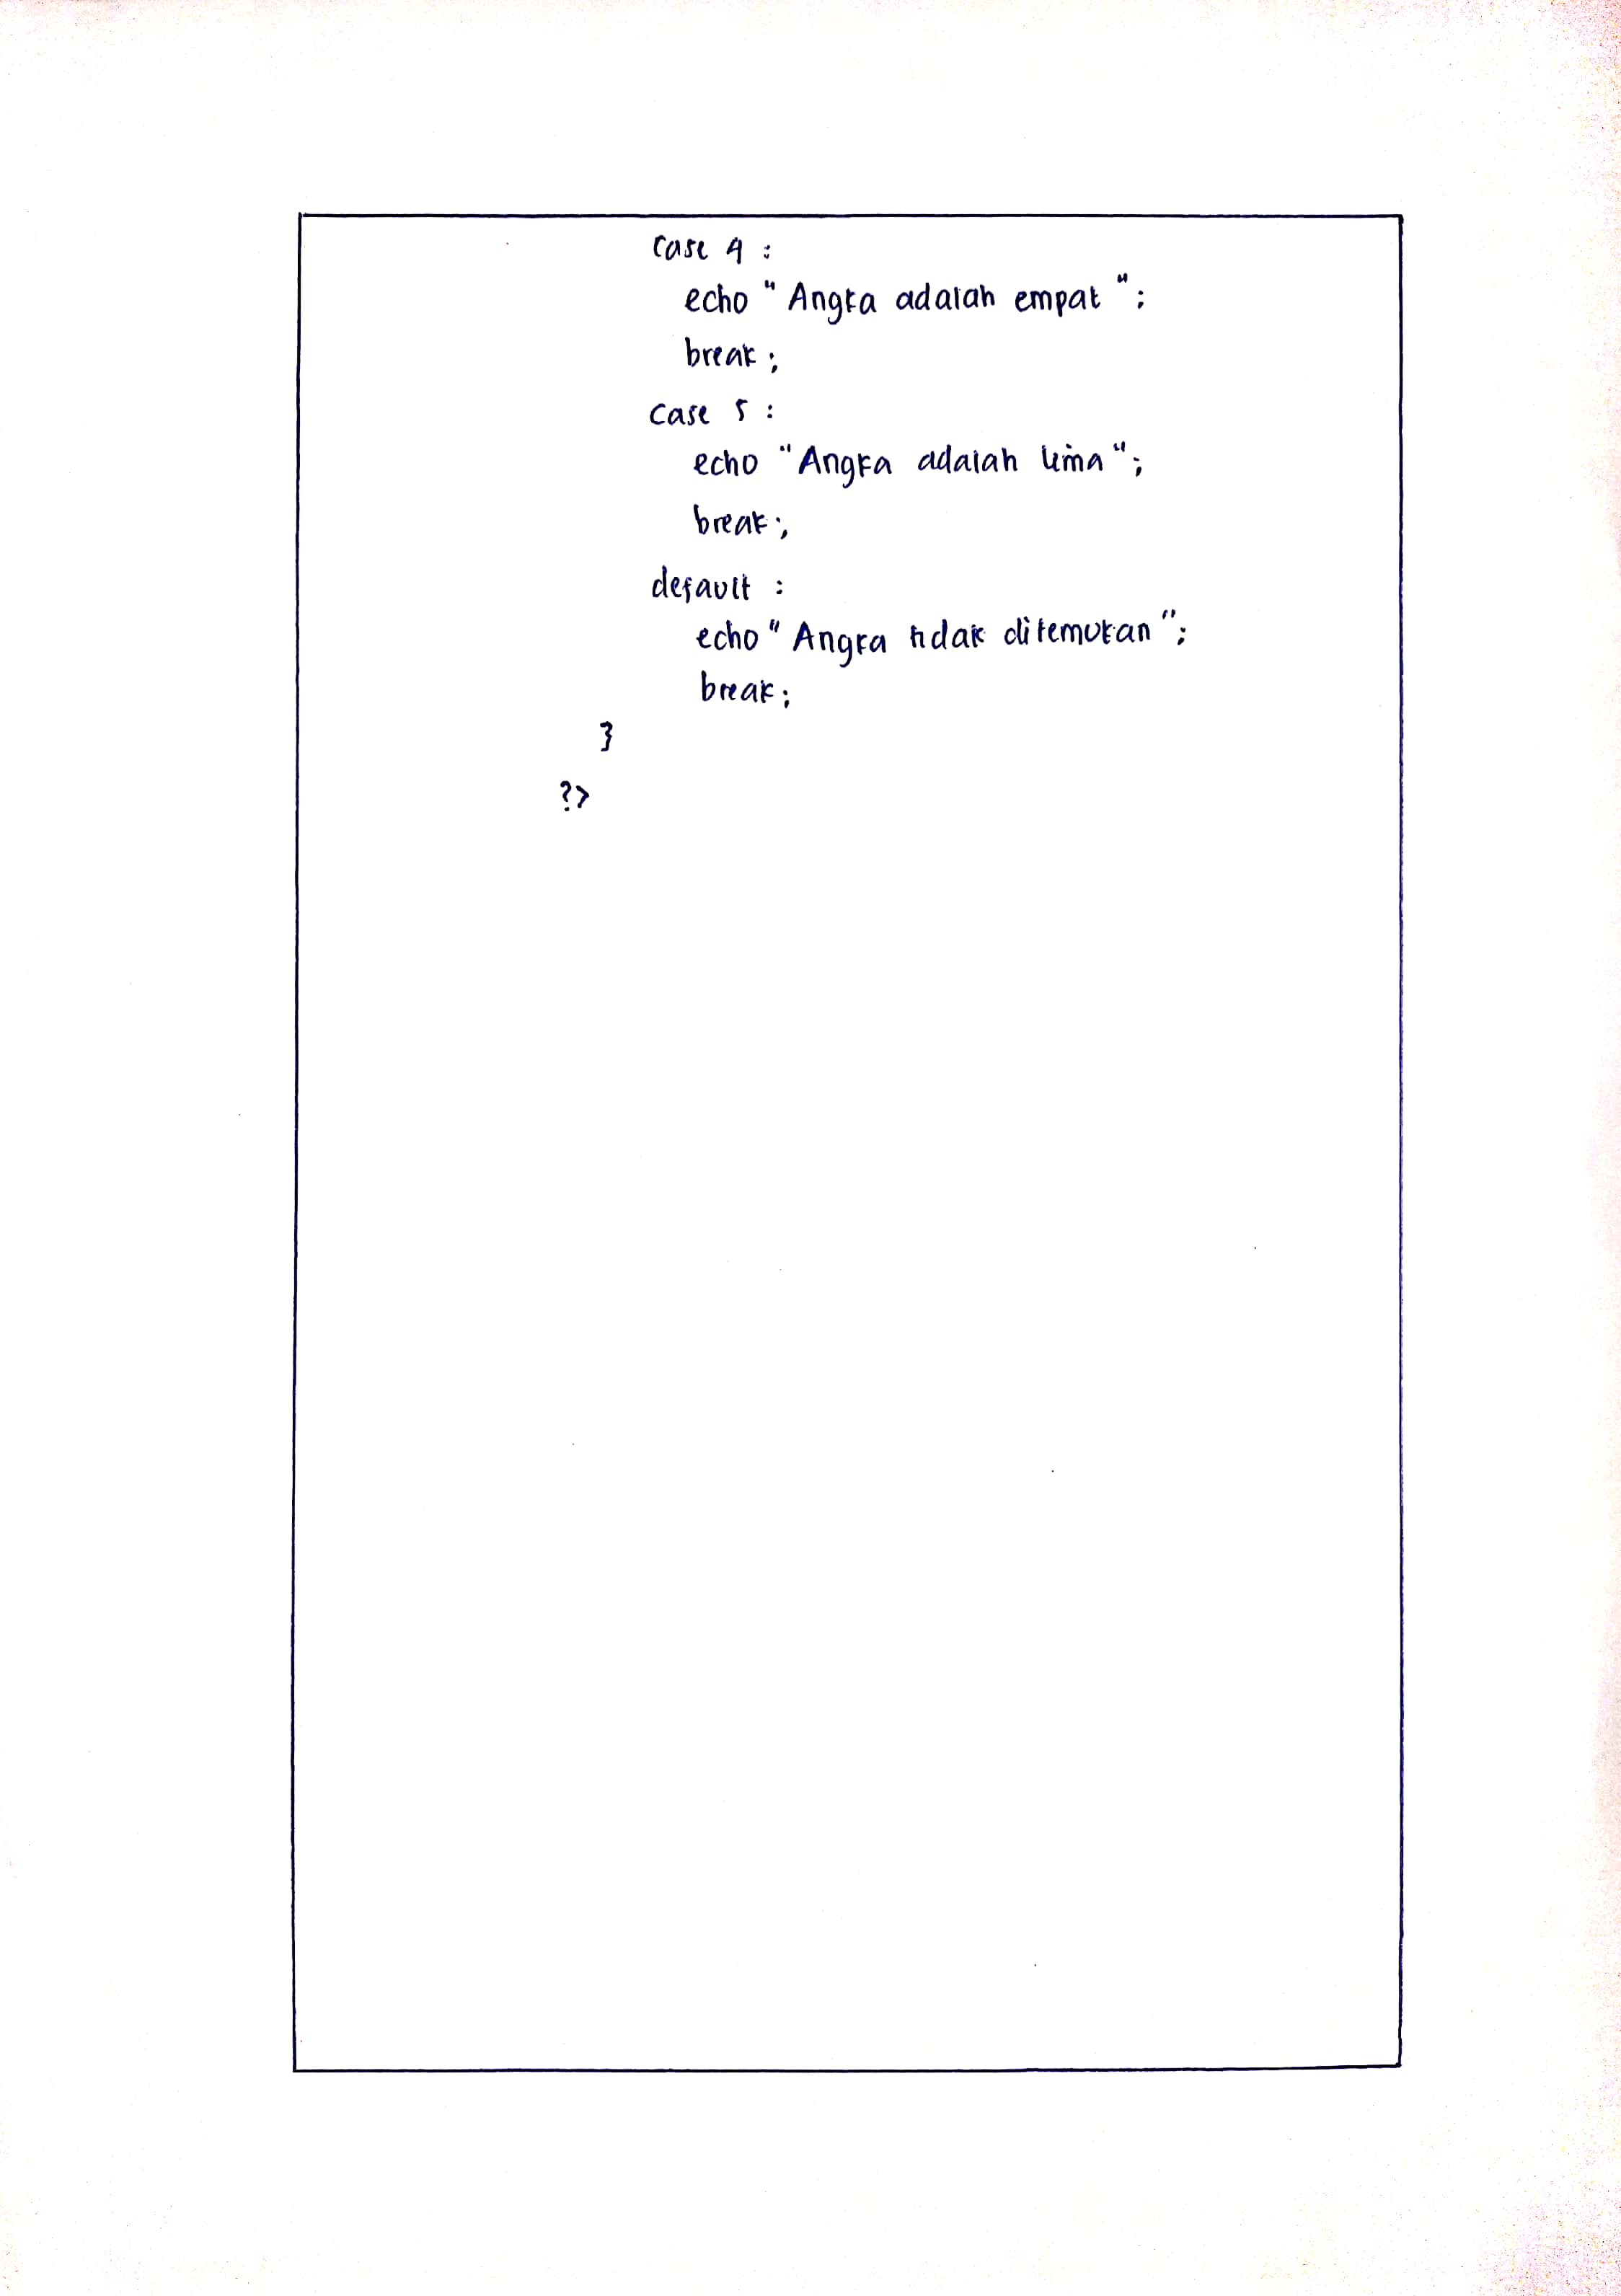 case 4 :
echo " Angka adalah empat ";
break ;
case 5 :
echo "Angka adalah lima";
break ;
default :
echo " Angka tidak ditemukan ";
break ;
}
?>